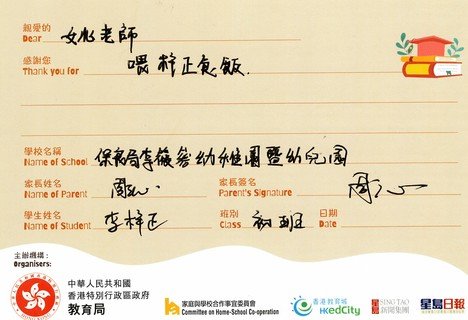 親愛的
Dear 姚老師
感謝您
Thank you for 喂梓正食飯.
學校名稱
Name of School 保良局李徐芬幼稚園暨幼兒園
家長姓名
Name of Parent 周心
家長簽名
Parent's Signature 周心
學生姓名
Name of Student 李梓正
班別
Class 初班
日期
Date
主辦機構：
Organisers:
中華人民共和國
香港特別行政區政府
教育局
家庭與學校合作事宜委員會
Committee on Home-School Co-operation
香港教育城
HKedCity
星島 SING TAO
新聞集團
星島日報